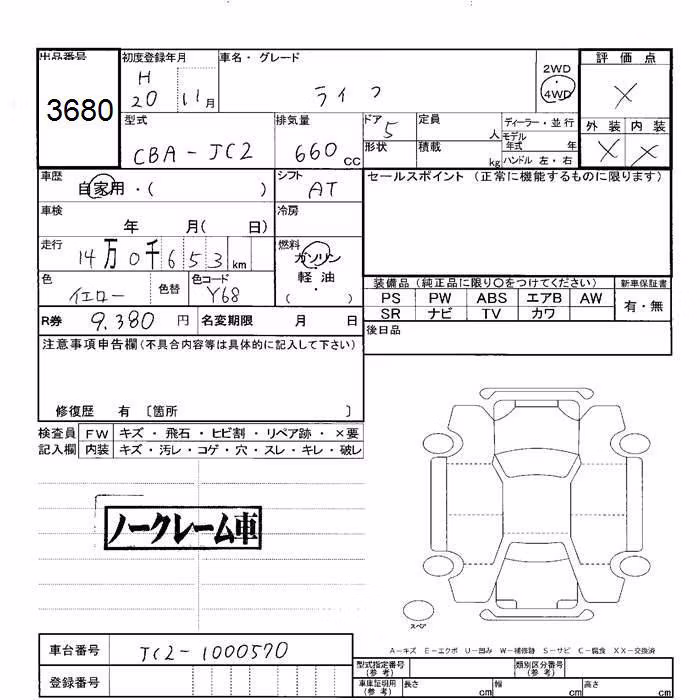 出品番号 初度登録年月 車名・グレード 評価点
3680 H 20 11月 ライフ 2WD・4WD X
型式 排気量 ドア 5 定員 人 ディーラー・並行 外装 内装
CBA-JC2 660cc 形状 積載 kg モデル年式 年 X X
ハンドル 左・右
車歴 シフト セールスポイント (正常に機能するものに限ります)
自家用・( ) AT
車検 冷房
年 月( 日)
走行 燃料
14万0千653km ガソリン・軽油
色 色替 色コード ・( )
イエロー Y68
装備品 (純正品に限り〇をつけてください) 新車保証書
PS PW ABS エアB AW 有・無
SR ナビ TV カワ
R券 9,380円 名変期限 月 日
後日品
注意事項申告欄(不具合内容等は具体的に記入して下さい)
修復歴 有 〔箇所 〕
検査員 FW キズ・飛石・ヒビ割・リペア跡・×要
記入欄 内装 キズ・汚レ・コゲ・穴・スレ・キレ・破レ
ノークレーム車
スペア
A-キズ E-エクボ U-凹み W-補修跡 S-サビ C-腐食 XX-交換済
車台番号 JC2-1000570
登録番号
型式指定番号(参考) 類別区分番号(参考)
車庫証明用(参考) 長さ cm 幅 cm 高さ cm